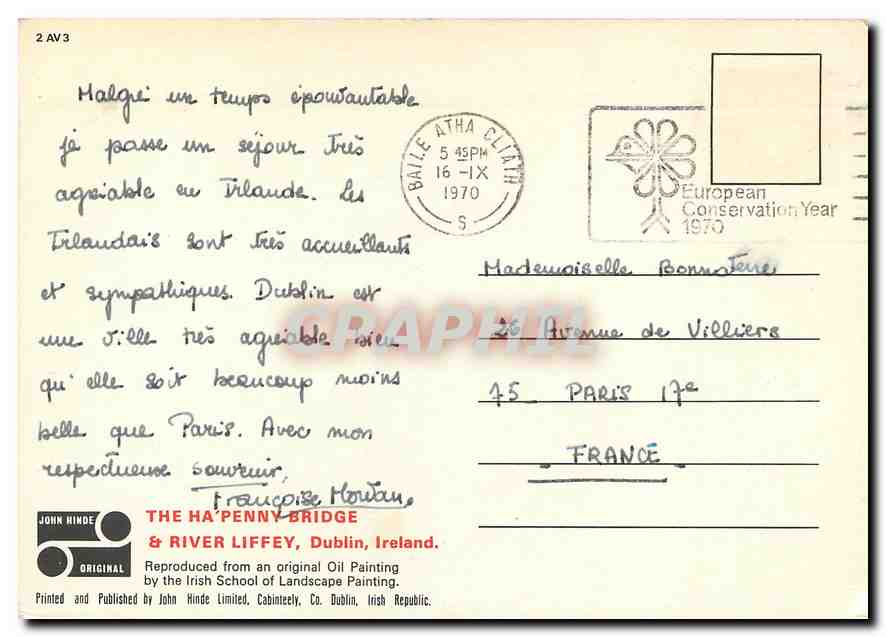 2 AV3
Malgré un temps épouvantable
je passe un séjour très
agréable en Irlande. Les
Irlandais sont très accueillants
et sympathiques. Dublin est
une ville très agréable bien
qu'elle soit beaucoup moins
belle que Paris. Avec mon
respectueux souvenir,
Françoise
BAILE ATHA CLIATH
5 45PM
16 -IX
1970
S
European
Conservation Year
1970
Mademoiselle Bonnaterre
26 Avenue de Villiers
75 PARIS 17e
FRANCE
GRAPHIL
JOHN HINDE
ORIGINAL
THE HA'PENNY BRIDGE
& RIVER LIFFEY, Dublin, Ireland.
Reproduced from an original Oil Painting
by the Irish School of Landscape Painting.
Printed and Published by John Hinde Limited, Cabinteely, Co. Dublin, Irish Republic.